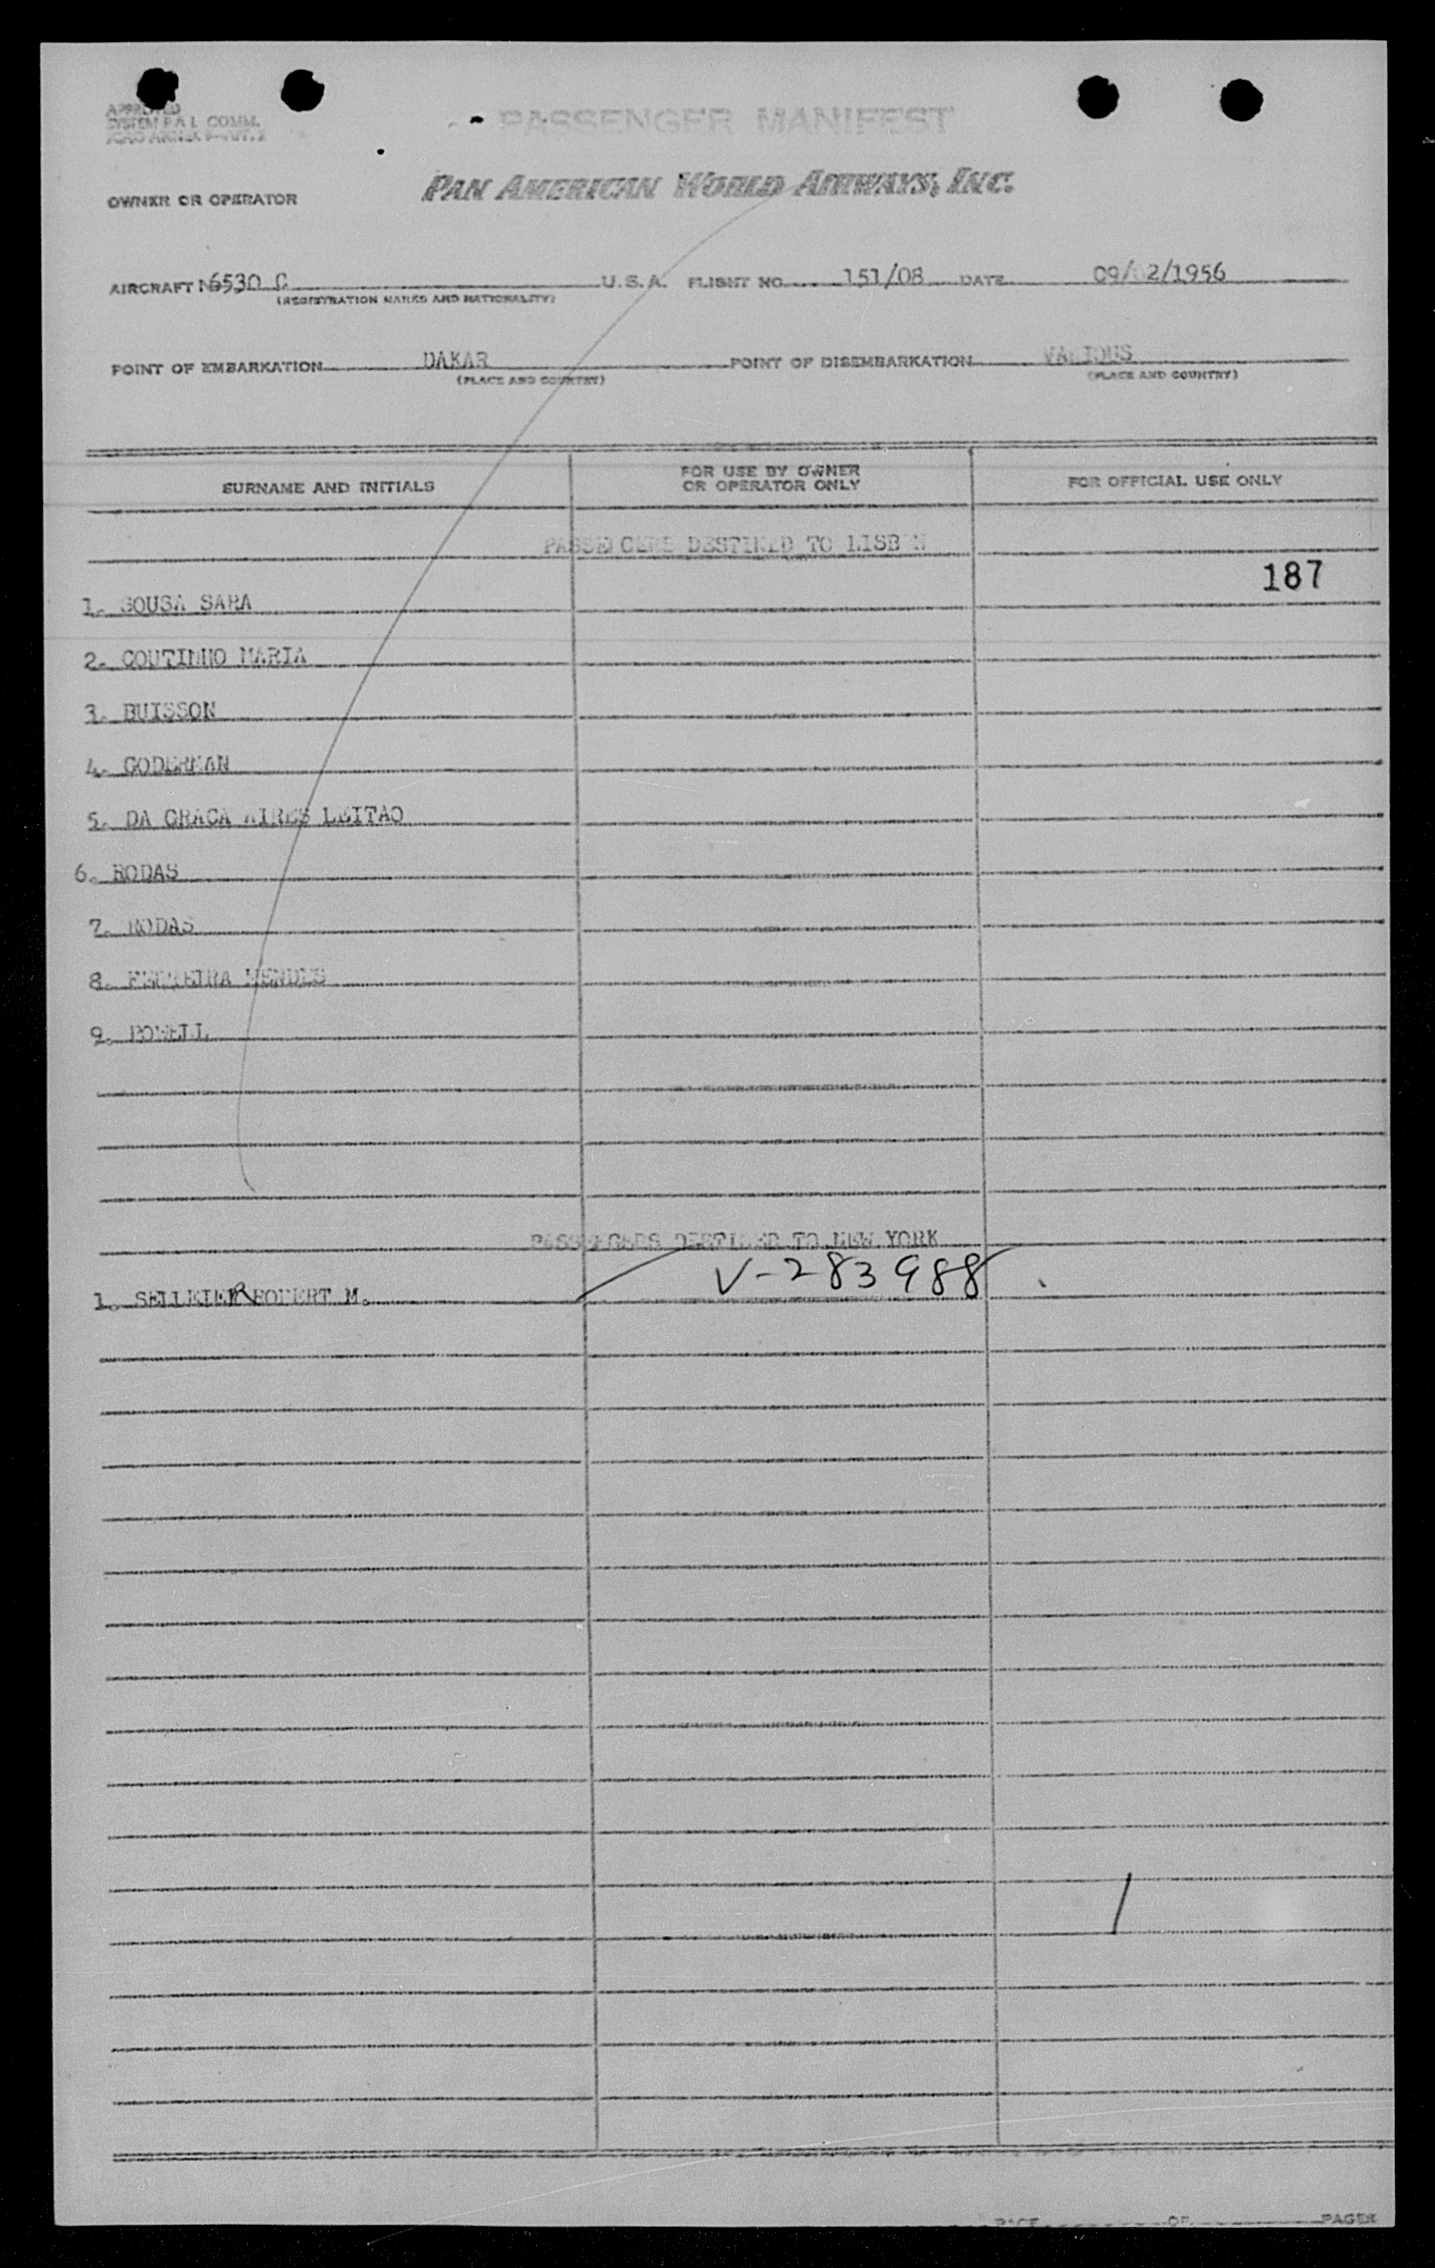 APPROVED
SYSTEM P.A L COMM.
PASSENGER MANIFEST
OWNER OR OPERATOR
PAN AMERICAN WORLD AIRWAYS, INC.
AIRCRAFT N6530 C U.S.A. FLIGHT NO. 151/08 DATE 09/02/1956
(REGISTRATION MARKS AND NATIONALITY)
POINT OF EMBARKATION DAKAR POINT OF DISEMBARKATION VARIOUS
(PLACE AND COUNTRY) (PLACE AND COUNTRY)
SURNAME AND INITIALS FOR USE BY OWNER OR OPERATOR ONLY FOR OFFICIAL USE ONLY
PASSENGERS DESTINED TO LISBON
187
1. SOUSA SARA
2. COUTINHO MARIA
3. BUISSON
4. GODERMAN
5. DA GRACA AIRES LEITAO
6. RODAS
7. RODAS
8. FERREIRA MENDES
9. POWELL
PASSENGERS DESTINED TO NEW YORK
1. SELLEIER ROBERT M. V-283988
PAGE OF PAGES